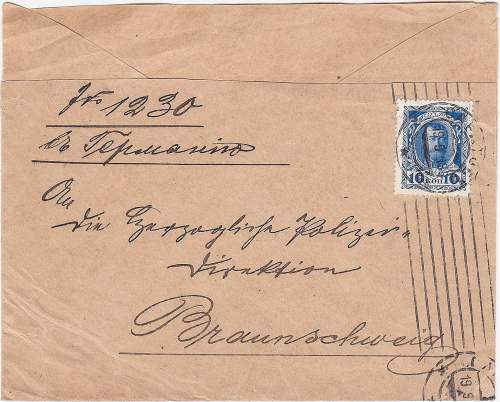 № 1230
въ Германію
An
die Herzogliche Polizei-
Direktion
Braunschweig
10 10
КОП